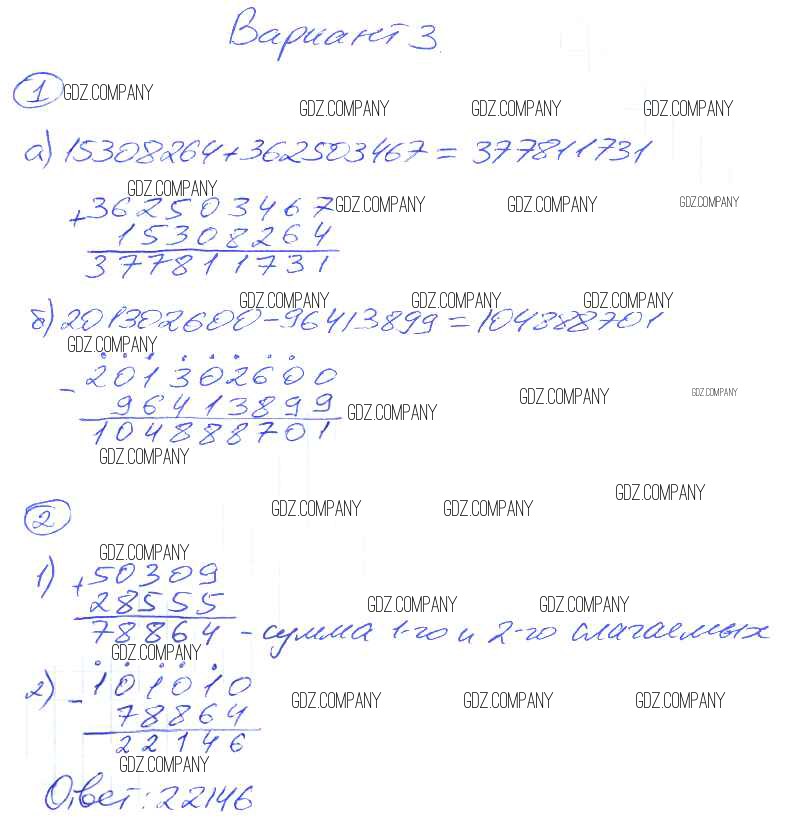 Вариант 3.
1 GDZ.COMPANY
GDZ.COMPANY GDZ.COMPANY GDZ.COMPANY
а) 15308264+362503467 = 377811731
GDZ.COMPANY
+362503467 GDZ.COMPANY GDZ.COMPANY GDZ.COMPANY
15308264
377811731
GDZ.COMPANY GDZ.COMPANY GDZ.COMPANY
б) 201302600-96413899=104388701
GDZ.COMPANY
- 201302600
GDZ.COMPANY GDZ.COMPANY
96413899 GDZ.COMPANY
104888701
GDZ.COMPANY
GDZ.COMPANY
2 GDZ.COMPANY GDZ.COMPANY
GDZ.COMPANY
1) +50309
28555 GDZ.COMPANY GDZ.COMPANY
78864 - сумма 1-го и 2-го слагаемых
GDZ.COMPANY
2) - 101010
GDZ.COMPANY GDZ.COMPANY GDZ.COMPANY
78864
22146
GDZ.COMPANY
Ответ: 22146